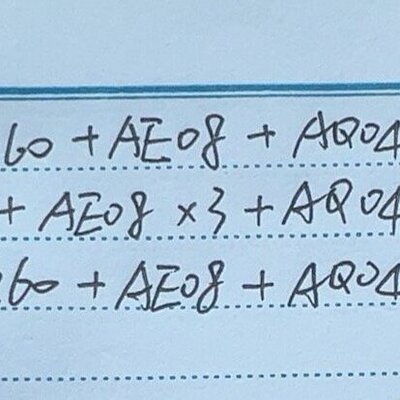 60 + AE08 + AQ04
+ AE08 ×3 + AQ04
260 + AE08 + AQ04